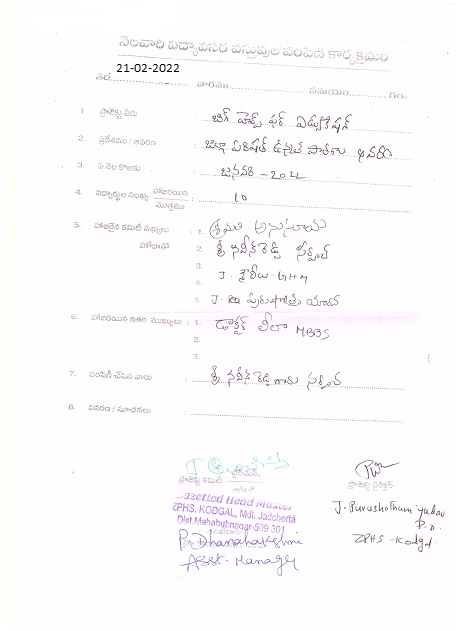 నెలవారి విద్యావసర వస్తువుల పంపిణి కార్యక్రమం
21-02-2022
తేది వారము సమయం గం॥
1. ప్రాజెక్టు పేరు : బిగ్ హెల్ప్ ఫర్ ఎడ్యుకేషన్
2. ప్రదేశము / ఆవరణ : జిల్లా పరిషత్ ఉన్నత పాఠశాల ఆవరణ
3. ఏ నెల కొరకు : జనవరి -
4. విద్యార్థుల సంఖ్య హాజరయిన / మొత్తము : 10
5. హాజరైన కమిటి సభ్యులు : 1. శ్రీమతి అనుసూయ
హోదాతో 2. శ్రీ నవీన్ రెడ్డి సర్పంచ్
3.
4. J. GHM
5. J. పురుషోత్తం యాదవ్
6. హాజరయిన ఇతర ముఖ్యులు : 1. డాక్టర్ లీలా MBBS
2.
3.
7. పంపిణీ చేసిన వారు : శ్రీ నవీన్ రెడ్డి గారు సర్పంచ్
8. వివరణ / సూచనలు :
ప్రాజెక్టు కమిటి ఛైర్మన్
ప్రాజెక్టు డైరెక్టర్
Gazetted Head Master
ZPHS, KODGAL, Mdl. Jadcherla
Dist.Mahabubnagar-509 301
J. Purushotham yadav
P.D.
ZPHS - Kodgal
P. Dhanalakshmi
Asst - Manager